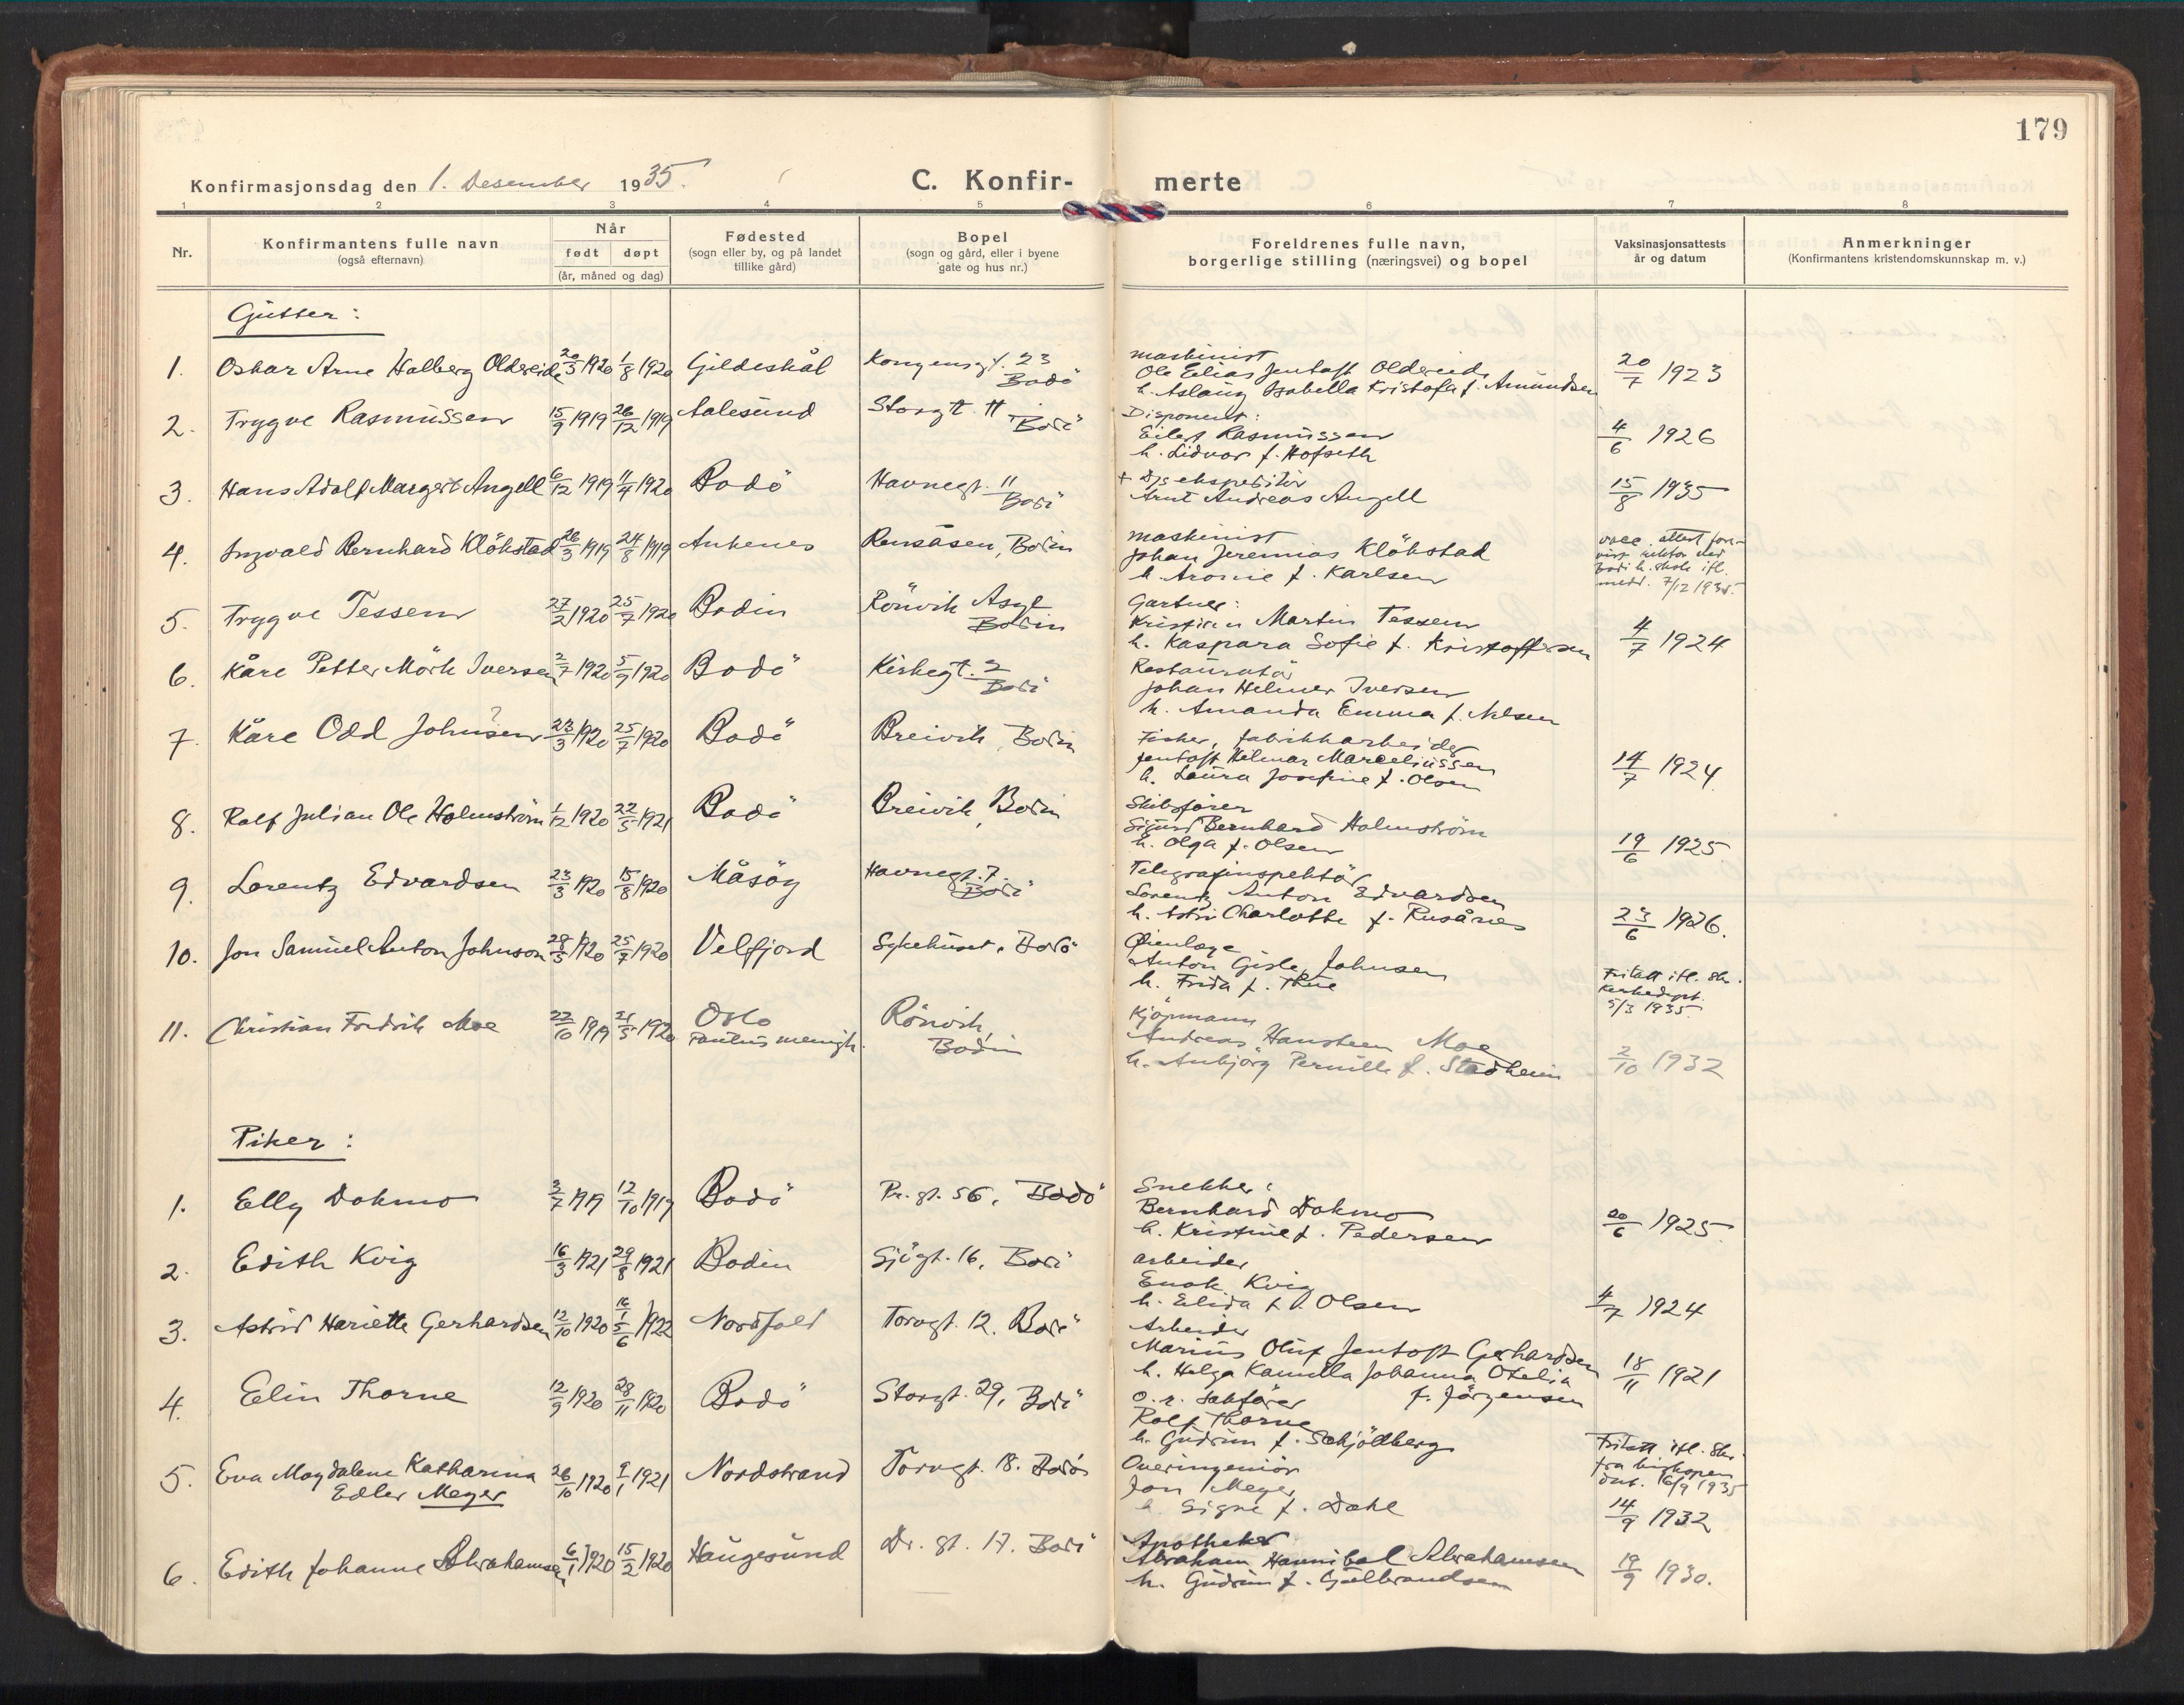 179
Konfirmasjonsdag den 1. Desember 1935.
C. Konfir-merte
1 2 3 4 5 6 7 8
Nr.
Konfirmantens fulle navn
(også efternavn)
Når
født døpt
(år, måned og dag)
Fødested
(sogn eller by, og på landet
tillike gård)
Bopel
(sogn og gård, eller i byene
gate og hus nr.)
Foreldrenes fulle navn,
borgerlige stilling (næringsvei) og bopel
Vaksinasjonsattests
år og datum
Anmerkninger
(Konfirmantens kristendomskunnskap m. v.)
Gutter:
1. Oskar Arne Halberg Oldereide 20/3 1920 1/8 1920 Gildeskål Kongensgt. 23 Bodö
maskinist
Ole Elias Jentoft Oldereide
h. Aslaug Isabella Kristofa f. Amundsen
20/7 1923
2. Trygve Rasmussen 15/9 1919 26/12 1919 Aalesund Storgt. 11 Bodö
Disponent:
Eilert Rasmussen
h. Lidvor f. Hofseth
4/6 1926
3. Hans Adolf Margert Angell 6/12 1919 11/4 1920 Bodö Havnegt. 11 Bodö
+ D/S ekspeditör
Arnt Andreas Angell
15/8 1935
4. Ingvald Bernhard Klökstad 26/3 1919 24/8 1919 Ankenes Rensåsen, Bodin
maskinist
Johan Jeremias Klökstad
h. Aronie f. Karlsen
vacc. attest fore-
vist rektor ved
Bodö h. skole ifl.
medd. 7/12 1935.
5. Trygve Tessem 27/2 1920 25/7 1920 Bodin Rönvik Asyl Bodin
Gartner:
Kristian Martin Tessem
h. Kaspara Sofie f. Kristoffersen
4/7 1924
6. Kåre Petter Mörk Iversen 2/7 1920 5/9 1920 Bodö Kirkegt. 2 Bodö
Restauratör
Johan Helmer Iversen
h. Amanda Emma f. Nilsen
7. Kåre Odd Johnsen 23/3 1920 25/7 1920 Bodö Breivik, Bodin
Fisker, fabrikkarbeider
Jentoft Hilmar Marceliussen
h. Laura Josefine f. Olsen
14/7 1924
8. Rolf Julian Ole Holmström 1/12 1920 22/5 1921 Bodö Breivik, Bodin
Skibsförer
Sigurd Bernhard Holmström
h. Olga f. Olsen
19/6 1925
9. Lorentz Edvardsen 23/3 1920 15/8 1920 Måsöy Havnegt. 7. Bodö
Telegrafinspektör
Lorentz Anton Edvardsen
h. Astri Charlotte f. Rusånes
23/6 1926.
10. Jon Samuel Anton Johnson 28/5 1920 25/7 1920 Velfjord Sykehuset, Bodö
Öienlæge
Anton Gisle Johnsen
h. Frida f. Thue
Fritatt ifl. skr.
Kirkedept.
5/3 1935
11. Christian Fredrik Moe 22/10 1919 24/5 1920 Oslo Paulus menigh. Rönvik, Bodin
Kjöpmann
Andreas Hansteen Moe
h. Anbjörg Pernille f. Stadheim
2/10 1932
Piker:
1. Elly Dokmo 3/7 1919 12/10 1919 Bodö Pr. gt. 56, Bodö
Snekker:
Bernhard Dokmo
h. Kristine f. Pedersen
20/6 1925
2. Edith Kvig 16/3 1921 29/8 1921 Bodin Sjögt. 16, Bodö
arbeider
Enok Kvig
h. Elida f. Olsen
4/7 1924
3. Astrid Hariette Gerhardsen 12/10 1920 16/1 5/6 1922 Nordfold Torvgt. 12. Bodö
Arbeider
Marius Oluf Jentoft Gerhardsen
h. Helga Kamilla Johanna Otelia
f. Jörgensen
18/11 1921
4. Elin Thorne 12/9 1920 28/11 1920 Bodö Storgt. 29, Bodö
o. r. sakförer
Rolf Thorne
h. Gudrun f. Schjöllberg
Fritatt ifl. skr.
fra biskopen
dat. 16/9 1935
5. Eva Magdalene Katharina
Edler Meyer 26/10 1920 9/1 1921 Nordstrand Torvgt. 18. Bodö
Overingeniör
Jon Meyer
h. Signe f. Dahl
14/9 1932
6. Edith Johanne Abrahamsen 6/1 1920 15/2 1920 Haugesund Dr. gt. 17. Bodö
Apotheker
Abraham Hannibal Abrahamsen
h. Gudrun f. Gulbrandsen
19/9 1930.